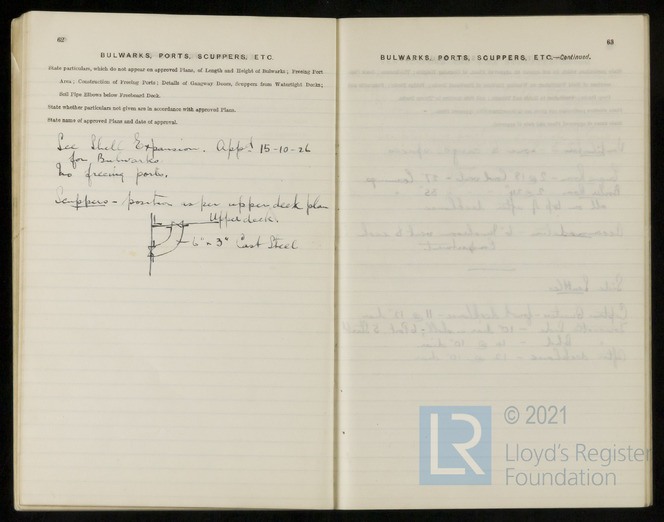 62
BULWARKS, PORTS, SCUPPERS, ETC.
State particulars, which do not appear on approved Plans, of Length and Height of Bulwarks; Freeing Port
Area; Construction of Freeing Ports; Details of Gangway Doors, Scuppers from Watertight Decks;
Soil Pipe Elbows below Freeboard Deck.
State whether particulars not given are in accordance with approved Plans.
State name of approved Plans and date of approval.
See Shell Expansion. Appd 15-10-26
for Bulwarks.
No freeing ports.
Scuppers - position as per upper deck plan
Upper deck.
6" × 3" Cast Steel
63
BULWARKS, PORTS, SCUPPERS, ETC.—Continued.
LR
© 2021
Lloyd's Register
Foundation